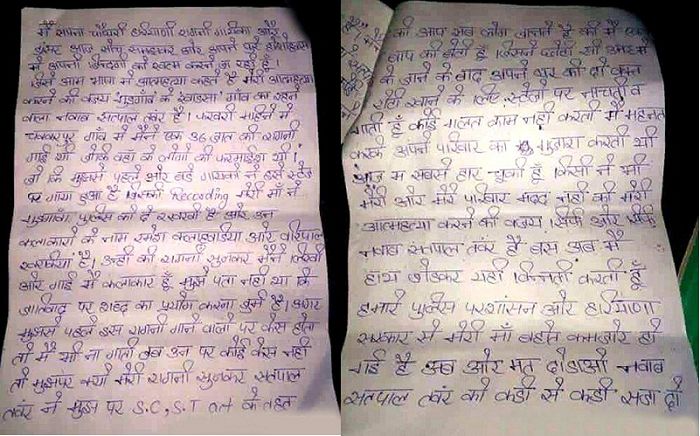 मैं सपना चौधरी हरियाणी रागनी गायिका और
डांसर आज सोच समझकर और अपने पूरे होशोहवास
में अपनी जिन्दगी को खत्म करने जा रही हूँ।
जिसे आम भाषा में आत्महत्या कहते है मेरी आत्महत्या
करने की वजय गुड़गांव के खांडसा गांव का रहने
वाला नवाब सतपाल तंवर है। फरवरी महिने में
चक्करपुर गाँव में मैंने एक 36 जात की रागनी
गाई थी जोकि वहां के लोगो की फरमाईश थी।
जो कि मुझसे पहले और बड़े गायको ने इसे स्टेज
पर गाया हुआ है जिसकी Recording मेरी माँ ने
गुड़गावाँ पुलिस को दे रखखी है और उन
कलाकारो के नाम
है। उन्ही की रागनी सुनकर मैंने लिखी
और गाई मैं कलाकार हूँ मुझे पता नहीं था कि
जातिवाद पर शब्द का प्रयोग करना जुर्म है। अगर
मुझसे पहले इस रागनी गाने वालो पर केस होता
तो मैं भी ना गाती जब उन पर कोई केस नहीं
तो मुझपर क्यों मेरी रागनी सुनकर सतपाल
तवंर ने मुझ पर S.C, S.T act के तहत
की आप सब लोग जानते है की मैं
बाप की बेटी हूँ। जिसने छोटी सी उमर में
के जाने के बाद अपने घर की दो वक्त
रोटी खाने के लिए स्टेजो पर नाचती व
गाती हूँ कोई गलत काम नहीं करती मैं महनत
करके अपने परिवार का गुजारा करती थी
आज मैं सबसे हार चुकी हूँ किसी ने भी
मेरी और मेरे परिवार मदद नही की मेरी
आत्महत्या करने की वजय सिर्फ और सिर्फ
नवाब सतपाल तंवर है बस अब मैं
हाथ जोडकर यही विनती करती हूँ
हमारे पुलिस परशासन और हरियाणा
सरकार से मेरी माँ बहुत कमजोर हो
गई है अब और मत दौडाओ नवाब
सतपाल तवंर को कडी से कडी सजा दो